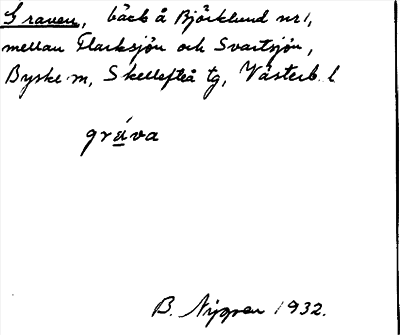 Graven, bäck å Björklund nr 1,
mellan Flarksjön och Svartsjön,
Byske m, Skellefteå tg, Västerb. l
gra̲´va
B. Nygren 1932.